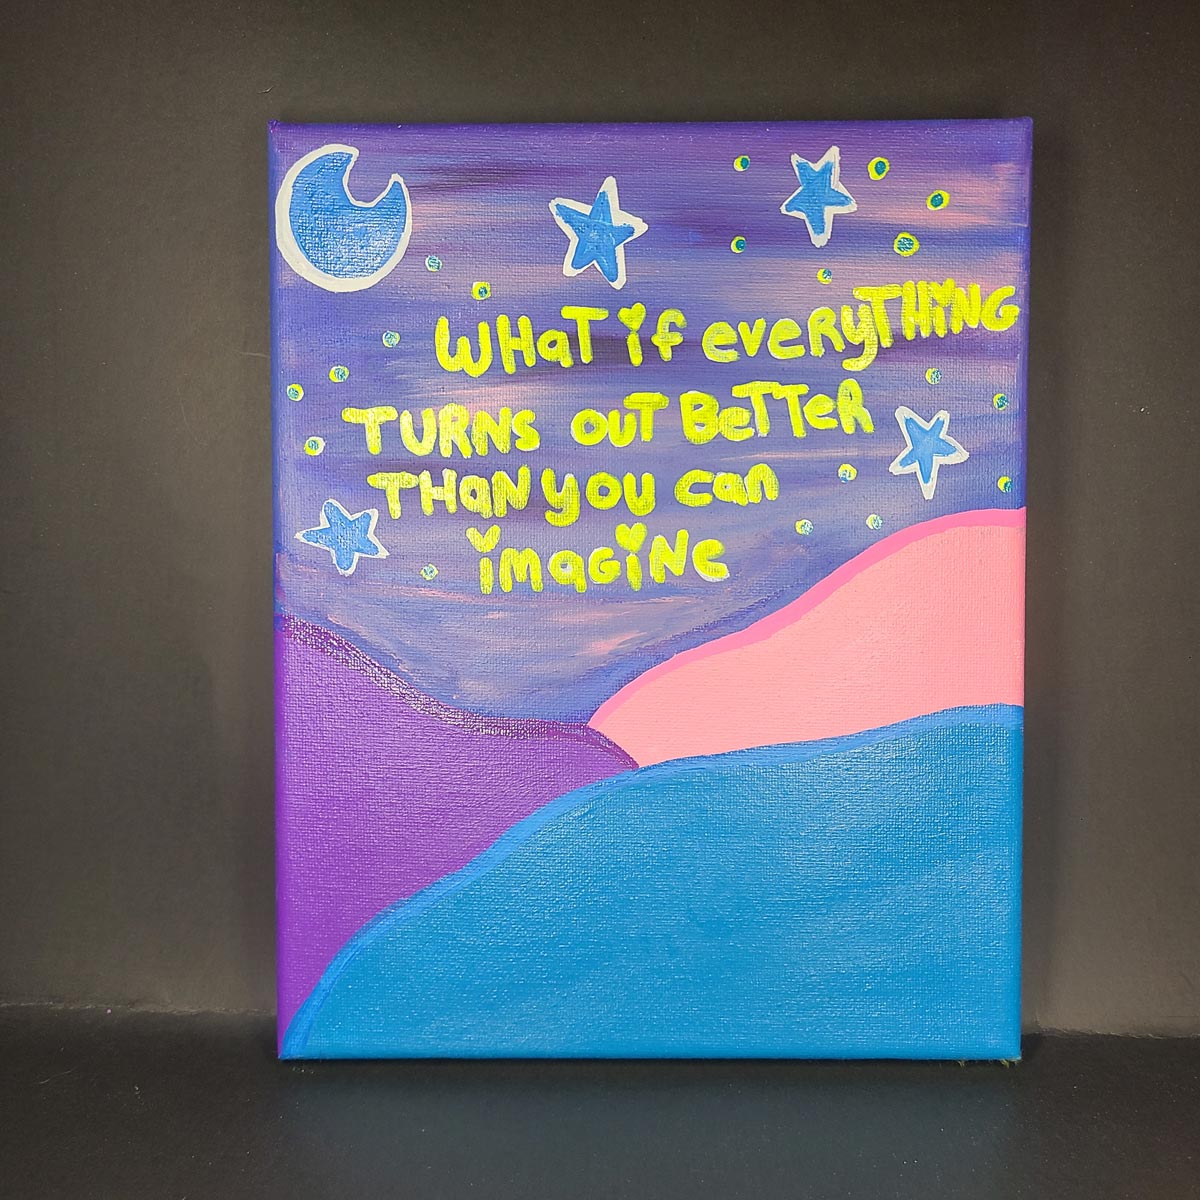 WHaT if eveRyTHiNG
TURNS OUT BeTTeR
THaN you can
imaGiNe